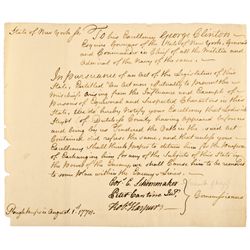 State of New York ss. To his Excellency George Clinton
Esquire Governor of the State of New York, General
and Commander in Chief of all the Militia and
Admiral of the Navy of the same.
In pursuance of an Act of the Legislature of this
State, Entitled "An Act more effectually to prevent the
mischiefs arising from the Influence and Example of
Persons of Equivocal and Suspected Characters in this
State, We do hereby Certify your Excellency that
of Dutchess County having appeared before
and being by us tendered the Oath in the said Act
Contained did refuse the same, and that unless your
Excellency shall think proper to detain him for the Purpose
of Exchanging him for any of the Subjects of this State in
the Power of the Enemy, he will Cause him to be removed
to some Place within the Enemy's Lines.
Poughkeepsie August 1st
Peter Cantine Jr.
Commissioners